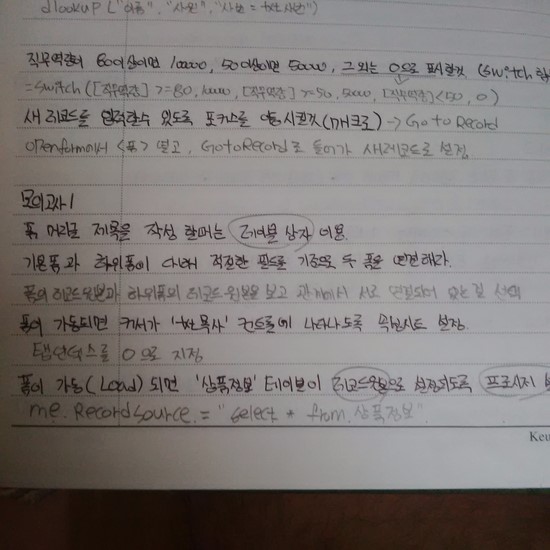 dlookup ("이름", "사원", "사번 = txt사번")
직무역량이 60이상이면 10000, 50이상이면 5000, 그 외는 0으로 표시할것 (switch
=switch([직무역량] >=60, 10000, [직무역량] >=50, 5000, [직무역량]<50, 0)
새 레코드를 입력할수 있도록 포커스를 이동시킬것(매크로) → Go to Record
openform에서 <폼> 열고, GotoRecord로 들어가 새레코드로 설정
모의고사1
폼 머리글 제목을 작성 할때는 레이블 상자 이용.
기본폼과 하위폼이 대해 적절한 필드를 기준으로 두 폼을 연결해라.
폼의 레코드원본과 하위폼의 레코드 원본을 보고 관계에서 서로 연결되어 있는걸 선택
폼이 가동되면 커서가 'txt목사' 컨트롤에 나타나도록 속성시트 설정.
탭인덱스를 0으로 지정
폼이 가동(Load)되면 '상품정보' 테이블이 레코드원본으로 설정되도록 프로시저
me.RecordSource = "select * from 상품정보"
Keu